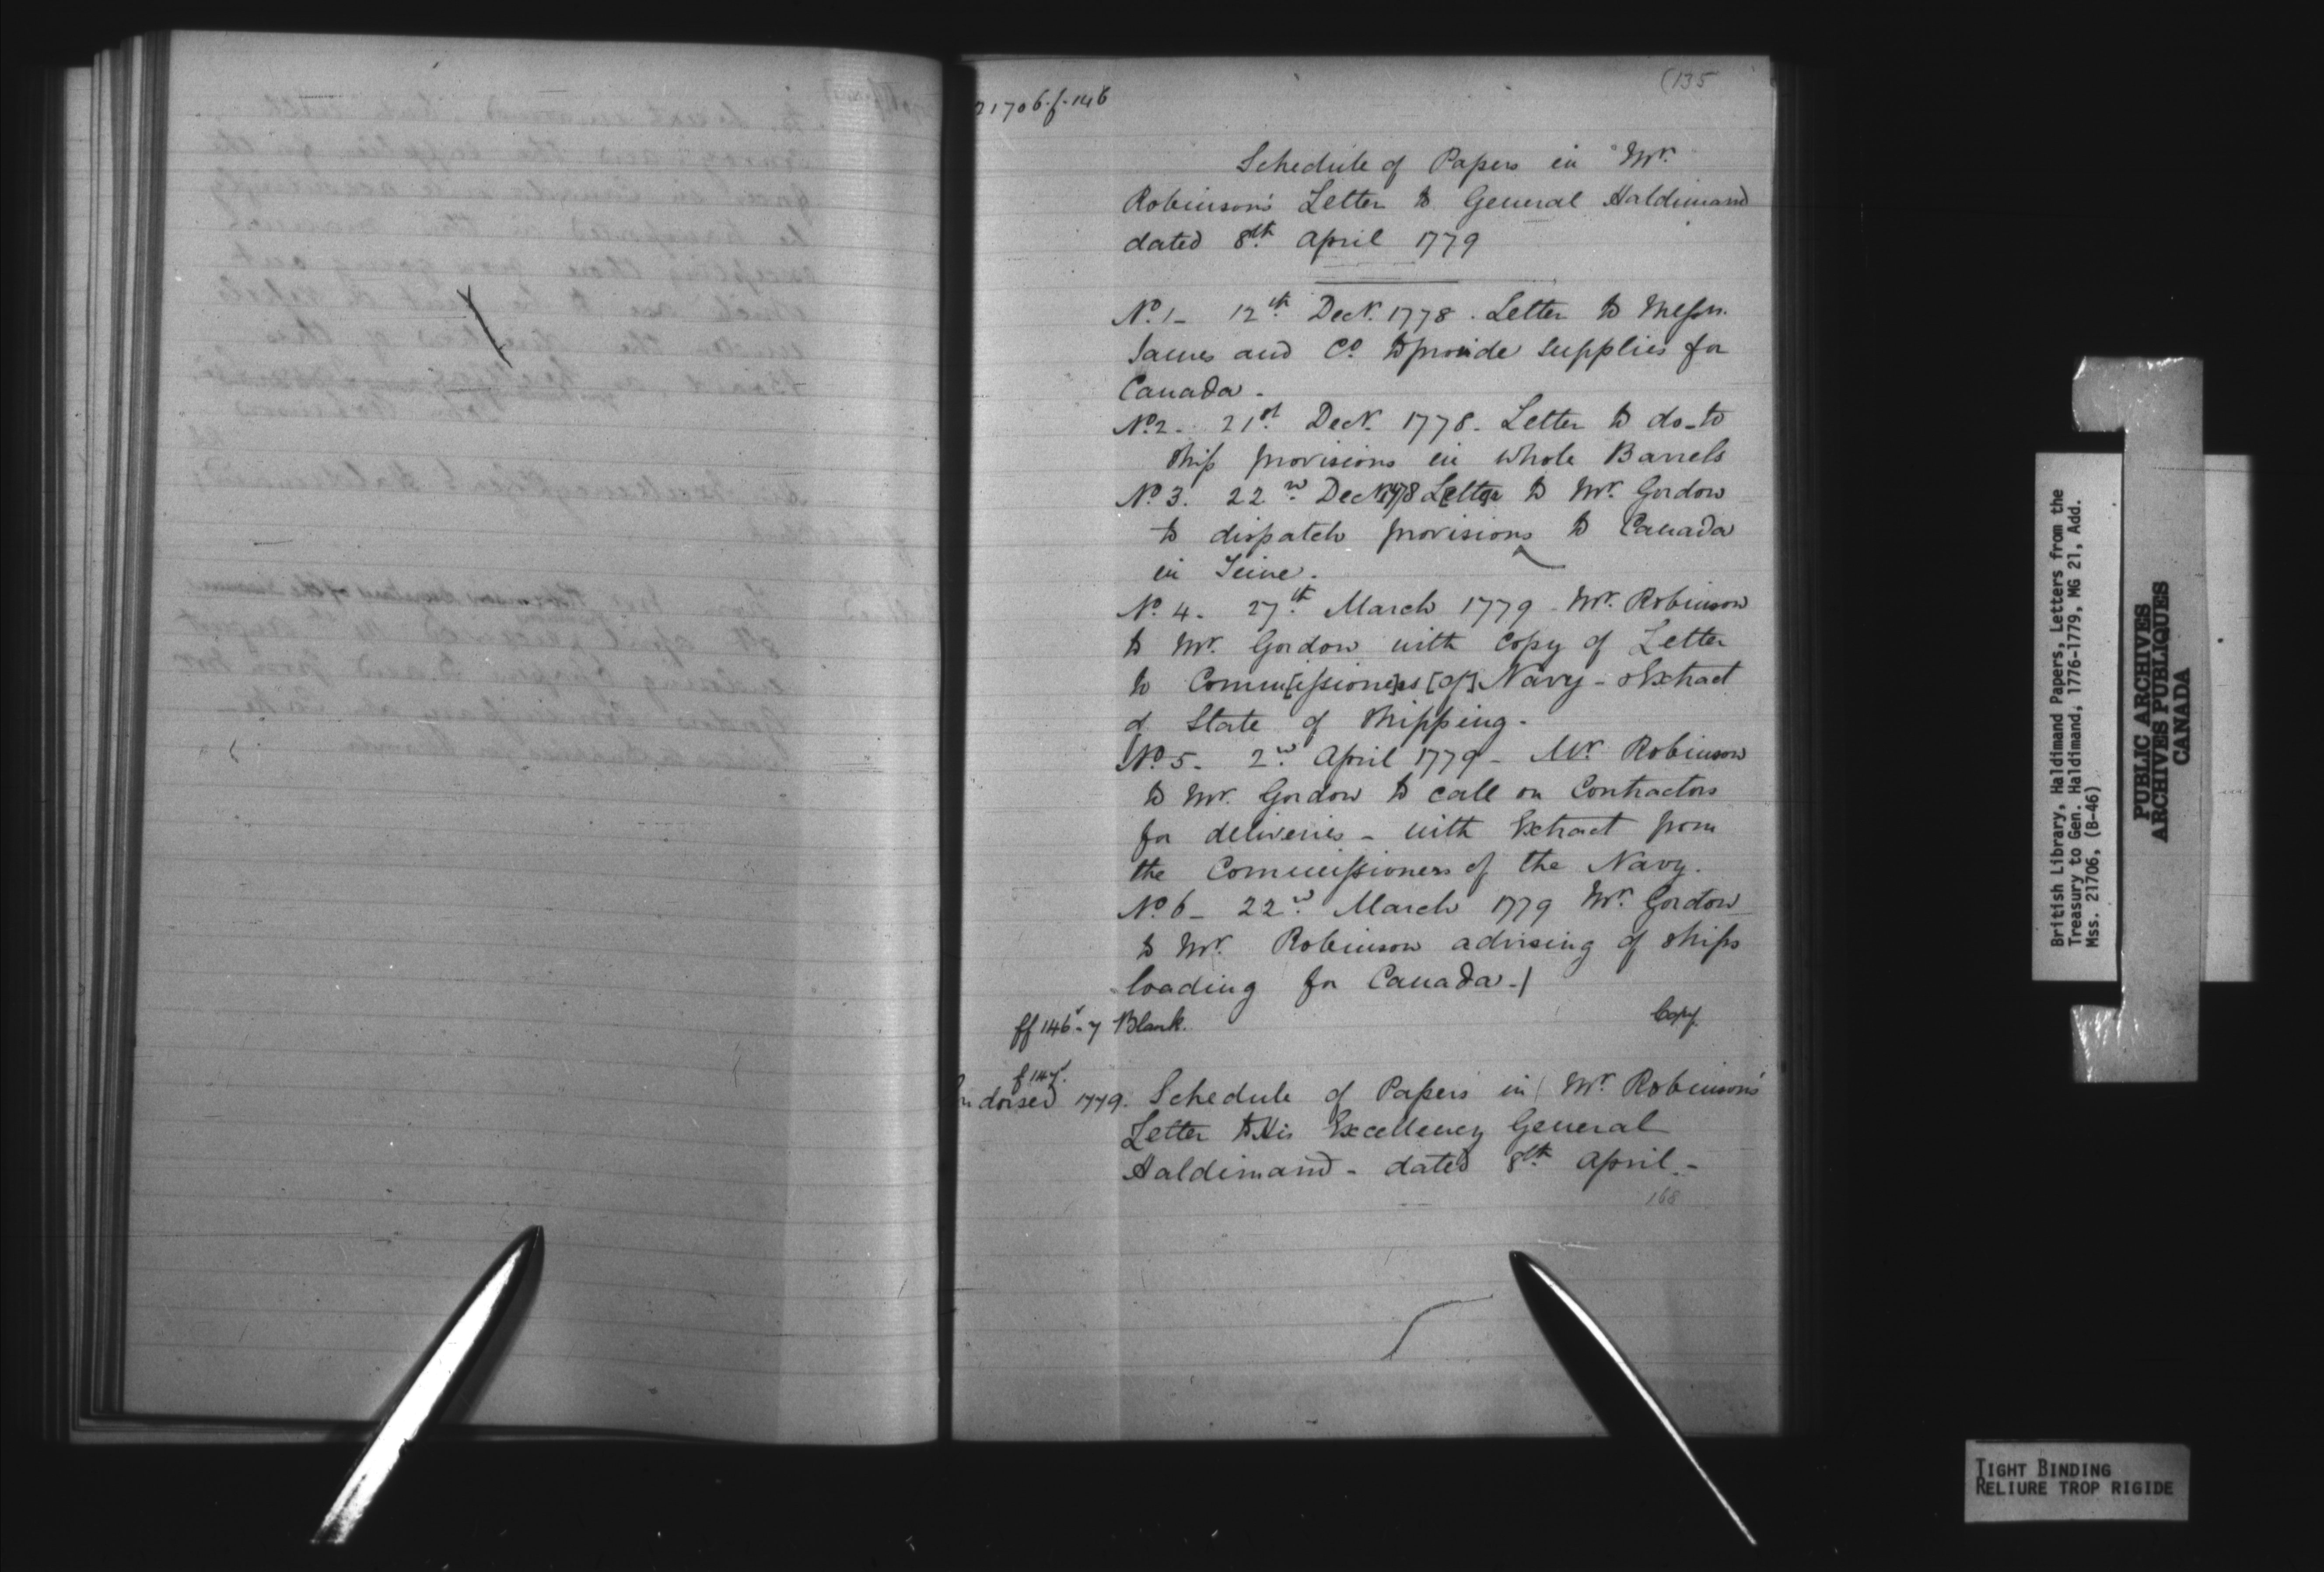 (135
21706.f.146
Schedule of Papers in Mr.
Robinson's Letter to General Haldimand
dated 8th. April 1779
No. 1 - 12th. Decr. 1778. Letter to Messrs.
James and Co. to provide supplies for
Canada -
No. 2 - 21st. Decr. 1778 - Letter to do - to
ship provisions in whole Barrels
No. 3. 22nd. Decr. 1778 Letter to Mr. Gordon
to dispatch provisions to Canada
in Seine.
No. 4 - 27th. March 1779 - Mr. Robinson
to Mr. Gordon with copy of Letter
to Comm[issione]rs [of] Navy - & Extract
of State of shipping -
No. 5 - 2nd. April 1779 - Mr. Robinson
to Mr. Gordon to call on Contractors
for deliveries - with Extract from
the Commissioners of the Navy.
No. 6 - 22nd. March 1779 Mr. Gordon
to Mr. Robinson advising of ships
loading for Canada -)
ff 146v-7 Blank. Copy.
f 147v.
Endorsed 1779. Schedule of Papers in Mr. Robinson's
Letter to His Excellency General
Haldimand - dated 8th. April -
168
British Library, Haldimand Papers, Letters from the
Treasury to Gen. Haldimand, 1776-1779, MG 21, Add.
Mss. 21706, (B-46)
PUBLIC ARCHIVES
ARCHIVES PUBLIQUES
CANADA
TIGHT BINDING
RELIURE TROP RIGIDE